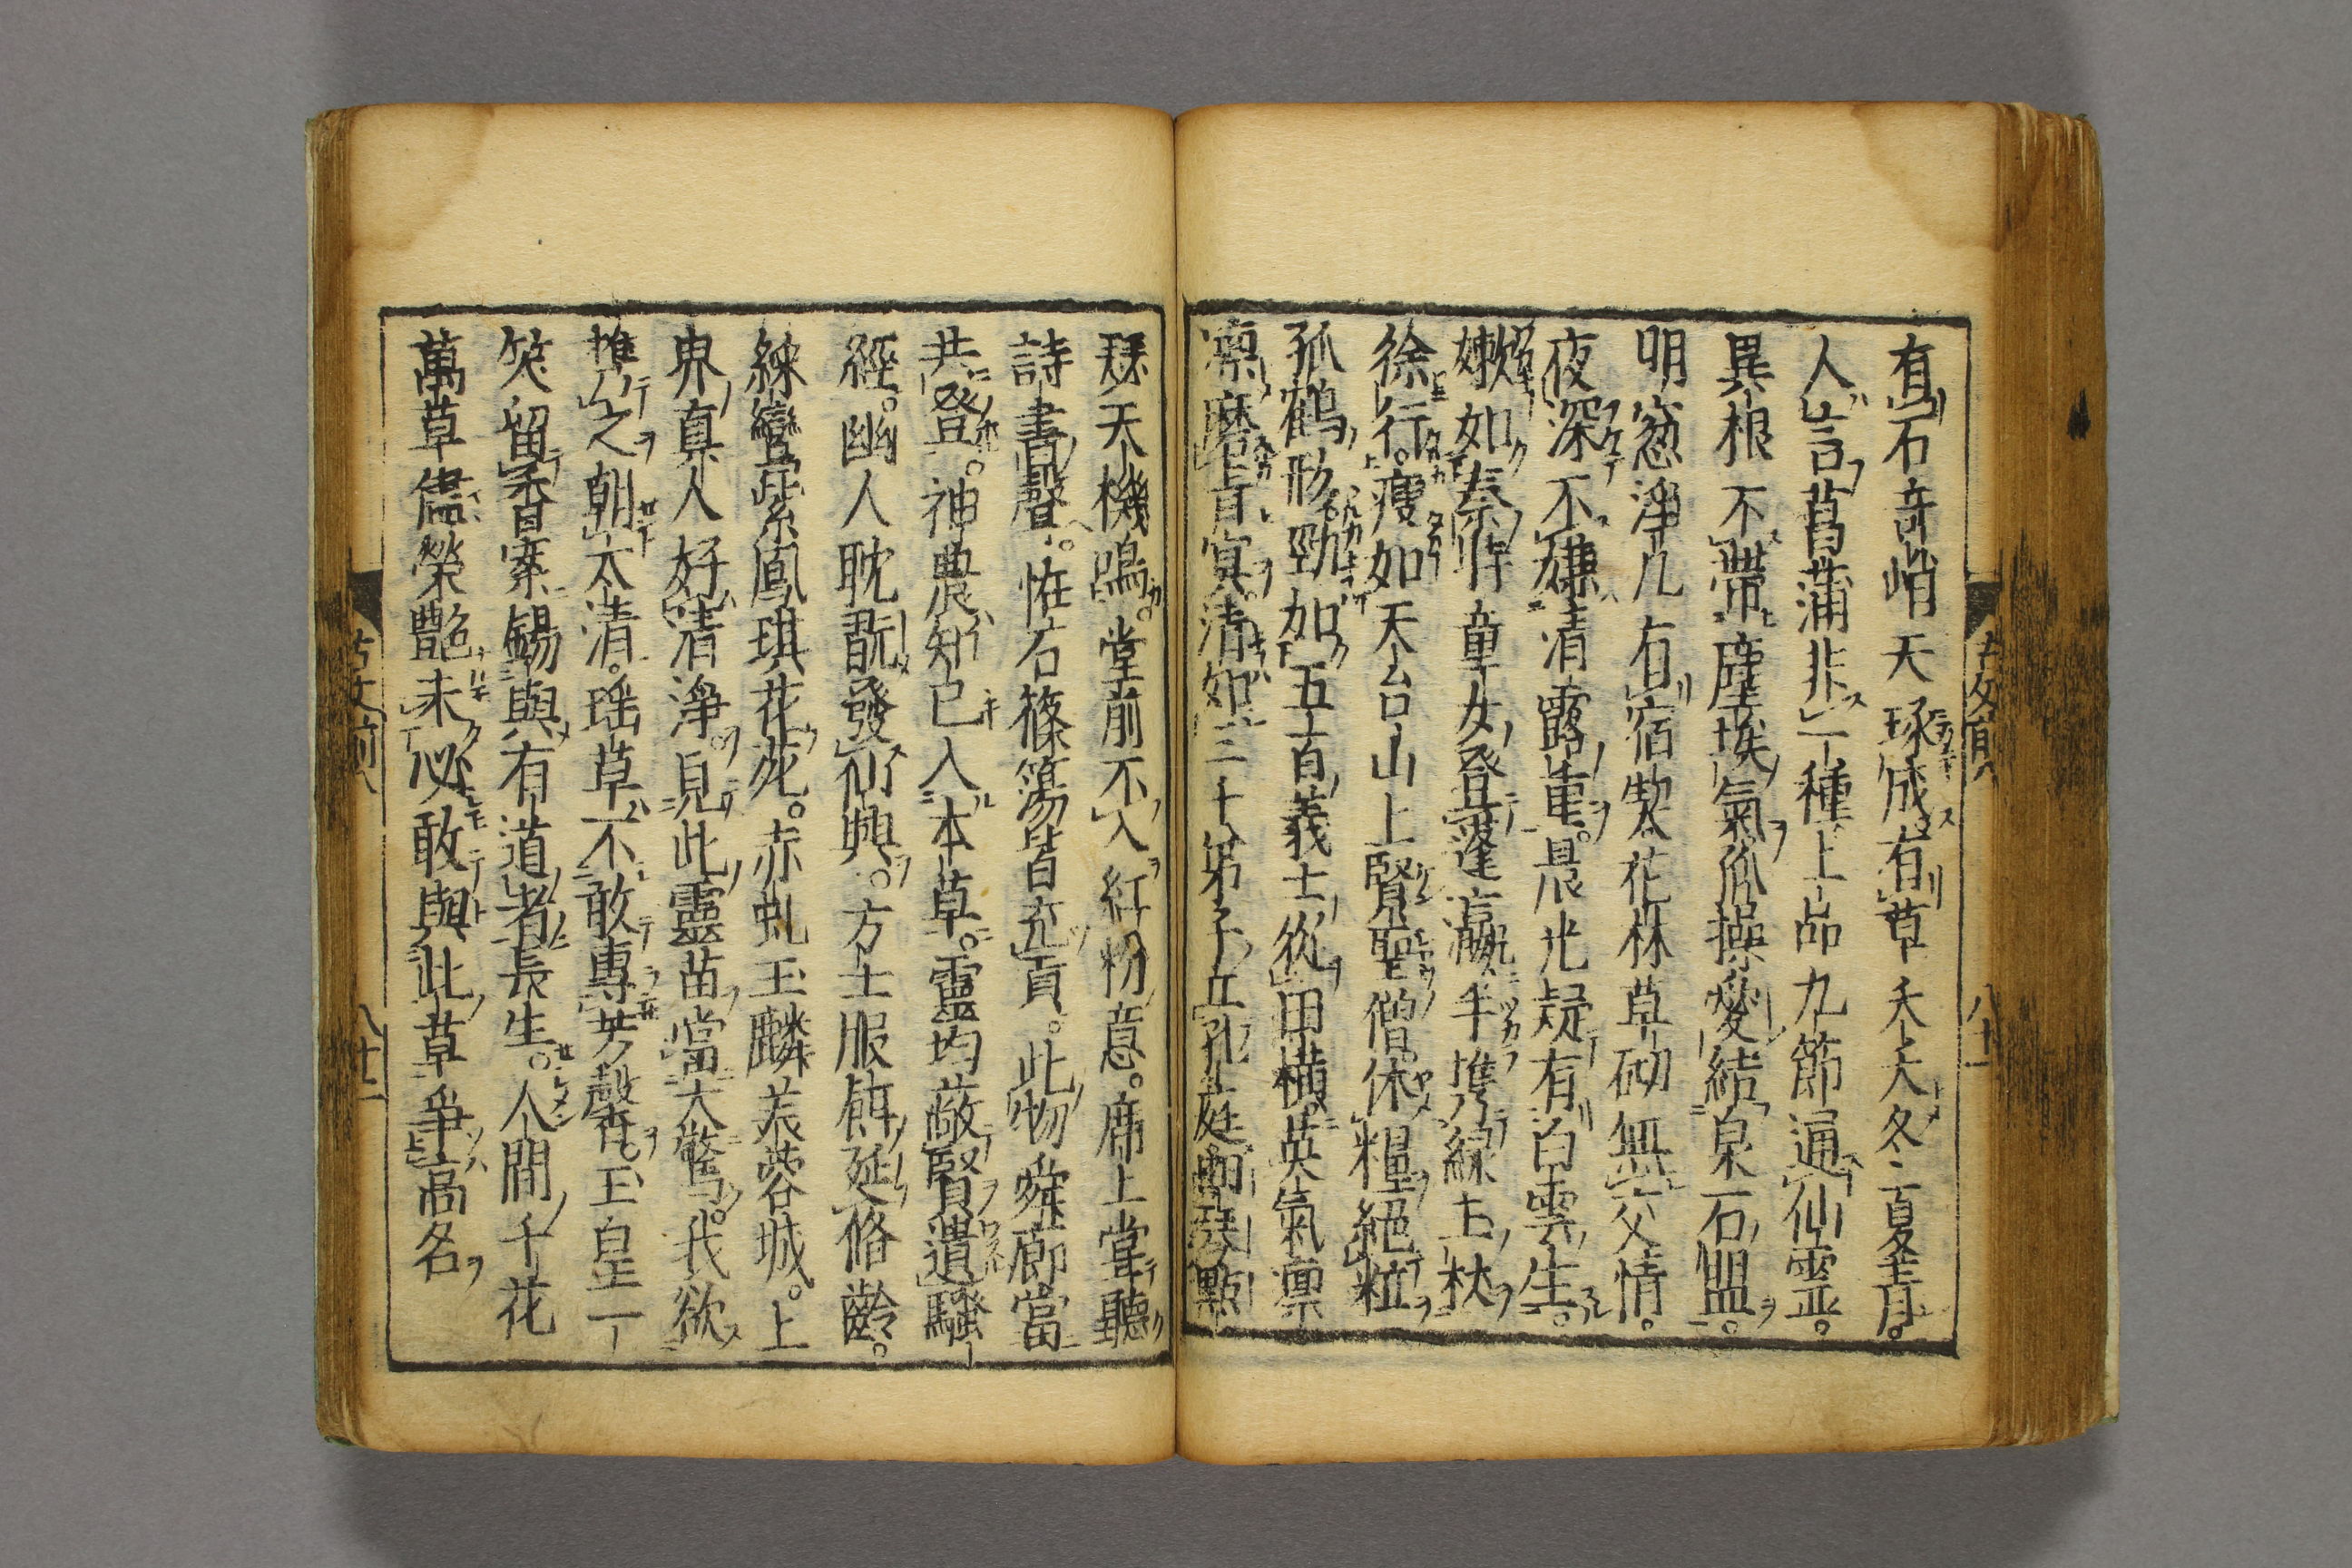 有石奇峭天琢成。有草夭夭冬夏青。
人言菖蒲非一種上品九節通仙霊。
異根不帶塵埃氣孤操愛結泉石盟。
明窓淨几有宿契花林草砌無交情。
夜深不嫌清露重。晨光疑有白雲生。
嫩如秦時童女登蓬瀛手携緑玉杖
徐行。瘦如天台山上賢聖僧。休糧絕粒
孤鶴形勁如五百義士從田横英氣凛
凛磨青冥。清如三十弟子立孔庭囬琴點
瑟天機鳴。堂前不入紅粉意。席上嘗聽
詩書聲。恠石篠簜皆充貢。此物舜廊當
共登。神農知已入本草。靈均蔽賢遺騒
經。幽人耽翫發仙興。方士服餌延修齡。
綵鸞紫鳳琪花苑。赤虬玉麟芙蓉城。上
界真人好清淨。見此靈苗當大驚。我欲
携之朝太清。瑶草不敢專芳馨。玉皇一
笑留香案錫與有道者長生。人間千花
萬草儘榮艶未必敢與此草爭高名
古文前八
八十一
古文前八
八十二